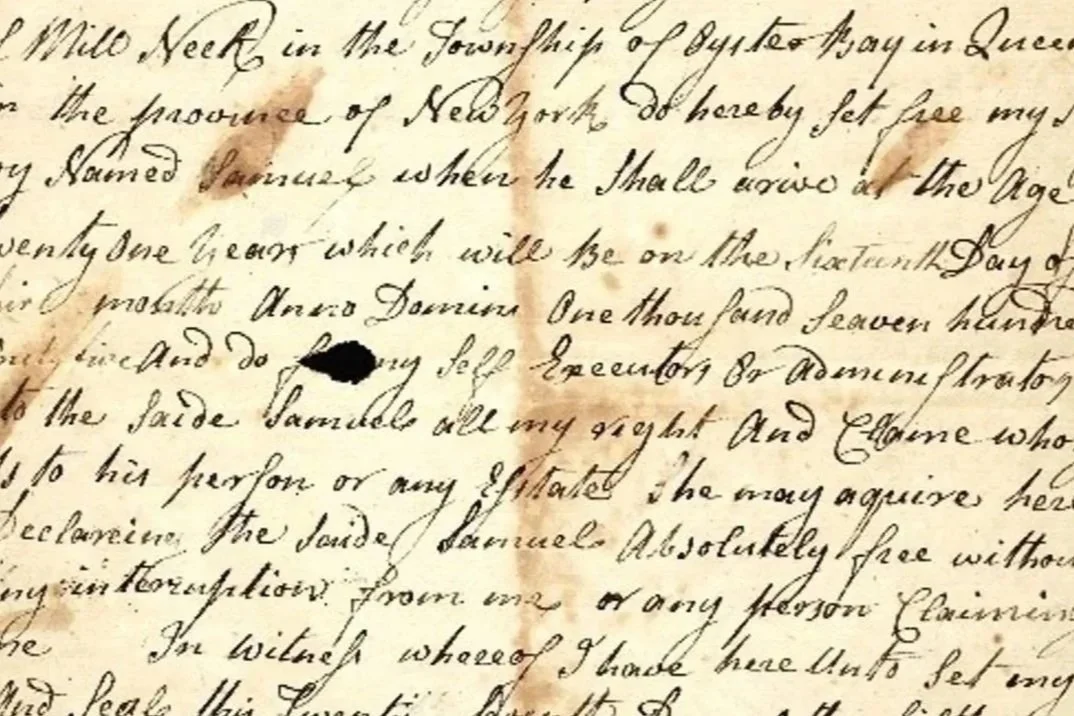 Mill Neck in the Township of Oyster Bay in Quee
the province of New York do hereby set free my
Named Samuel when he Shall arive at the Age
wenty One Years which will Be on the Sixteenth Day of
month Anno Domini One thousand Seaven hundre
five And do my Self Executors Or Administrators
to the Saide Samuel all my right And Claime who
to his person or any Estate he may aquire here
Declareing the Saide Samuel Absolutely free withou
ny interruption from me or any person Claimin
me In witness whereof I have here Unto Set my
And Seal this Twenty